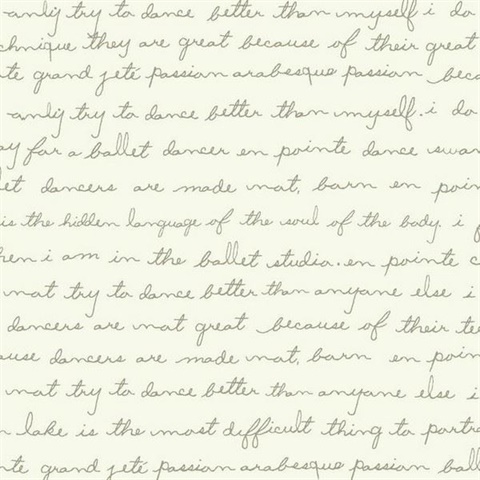 only try to dance better than myself i do
chnique they are great because of their great
te grand jeté passion arabesque passion beca
only try to dance better than myself. i do
ay for a ballet dancer en pointe dance swan
let dancers are made not, born en poin
is the hidden language of the soul of the body. i f
hen i am in the ballet studio. en pointe c
not try to dance better than anyone else i
dancers are not great because of their te
ause dancers are made not, born en poin
not try to dance better than anyone else i
n lake is the most difficult thing to portra
nte grand jeté passion arabesque passion ball